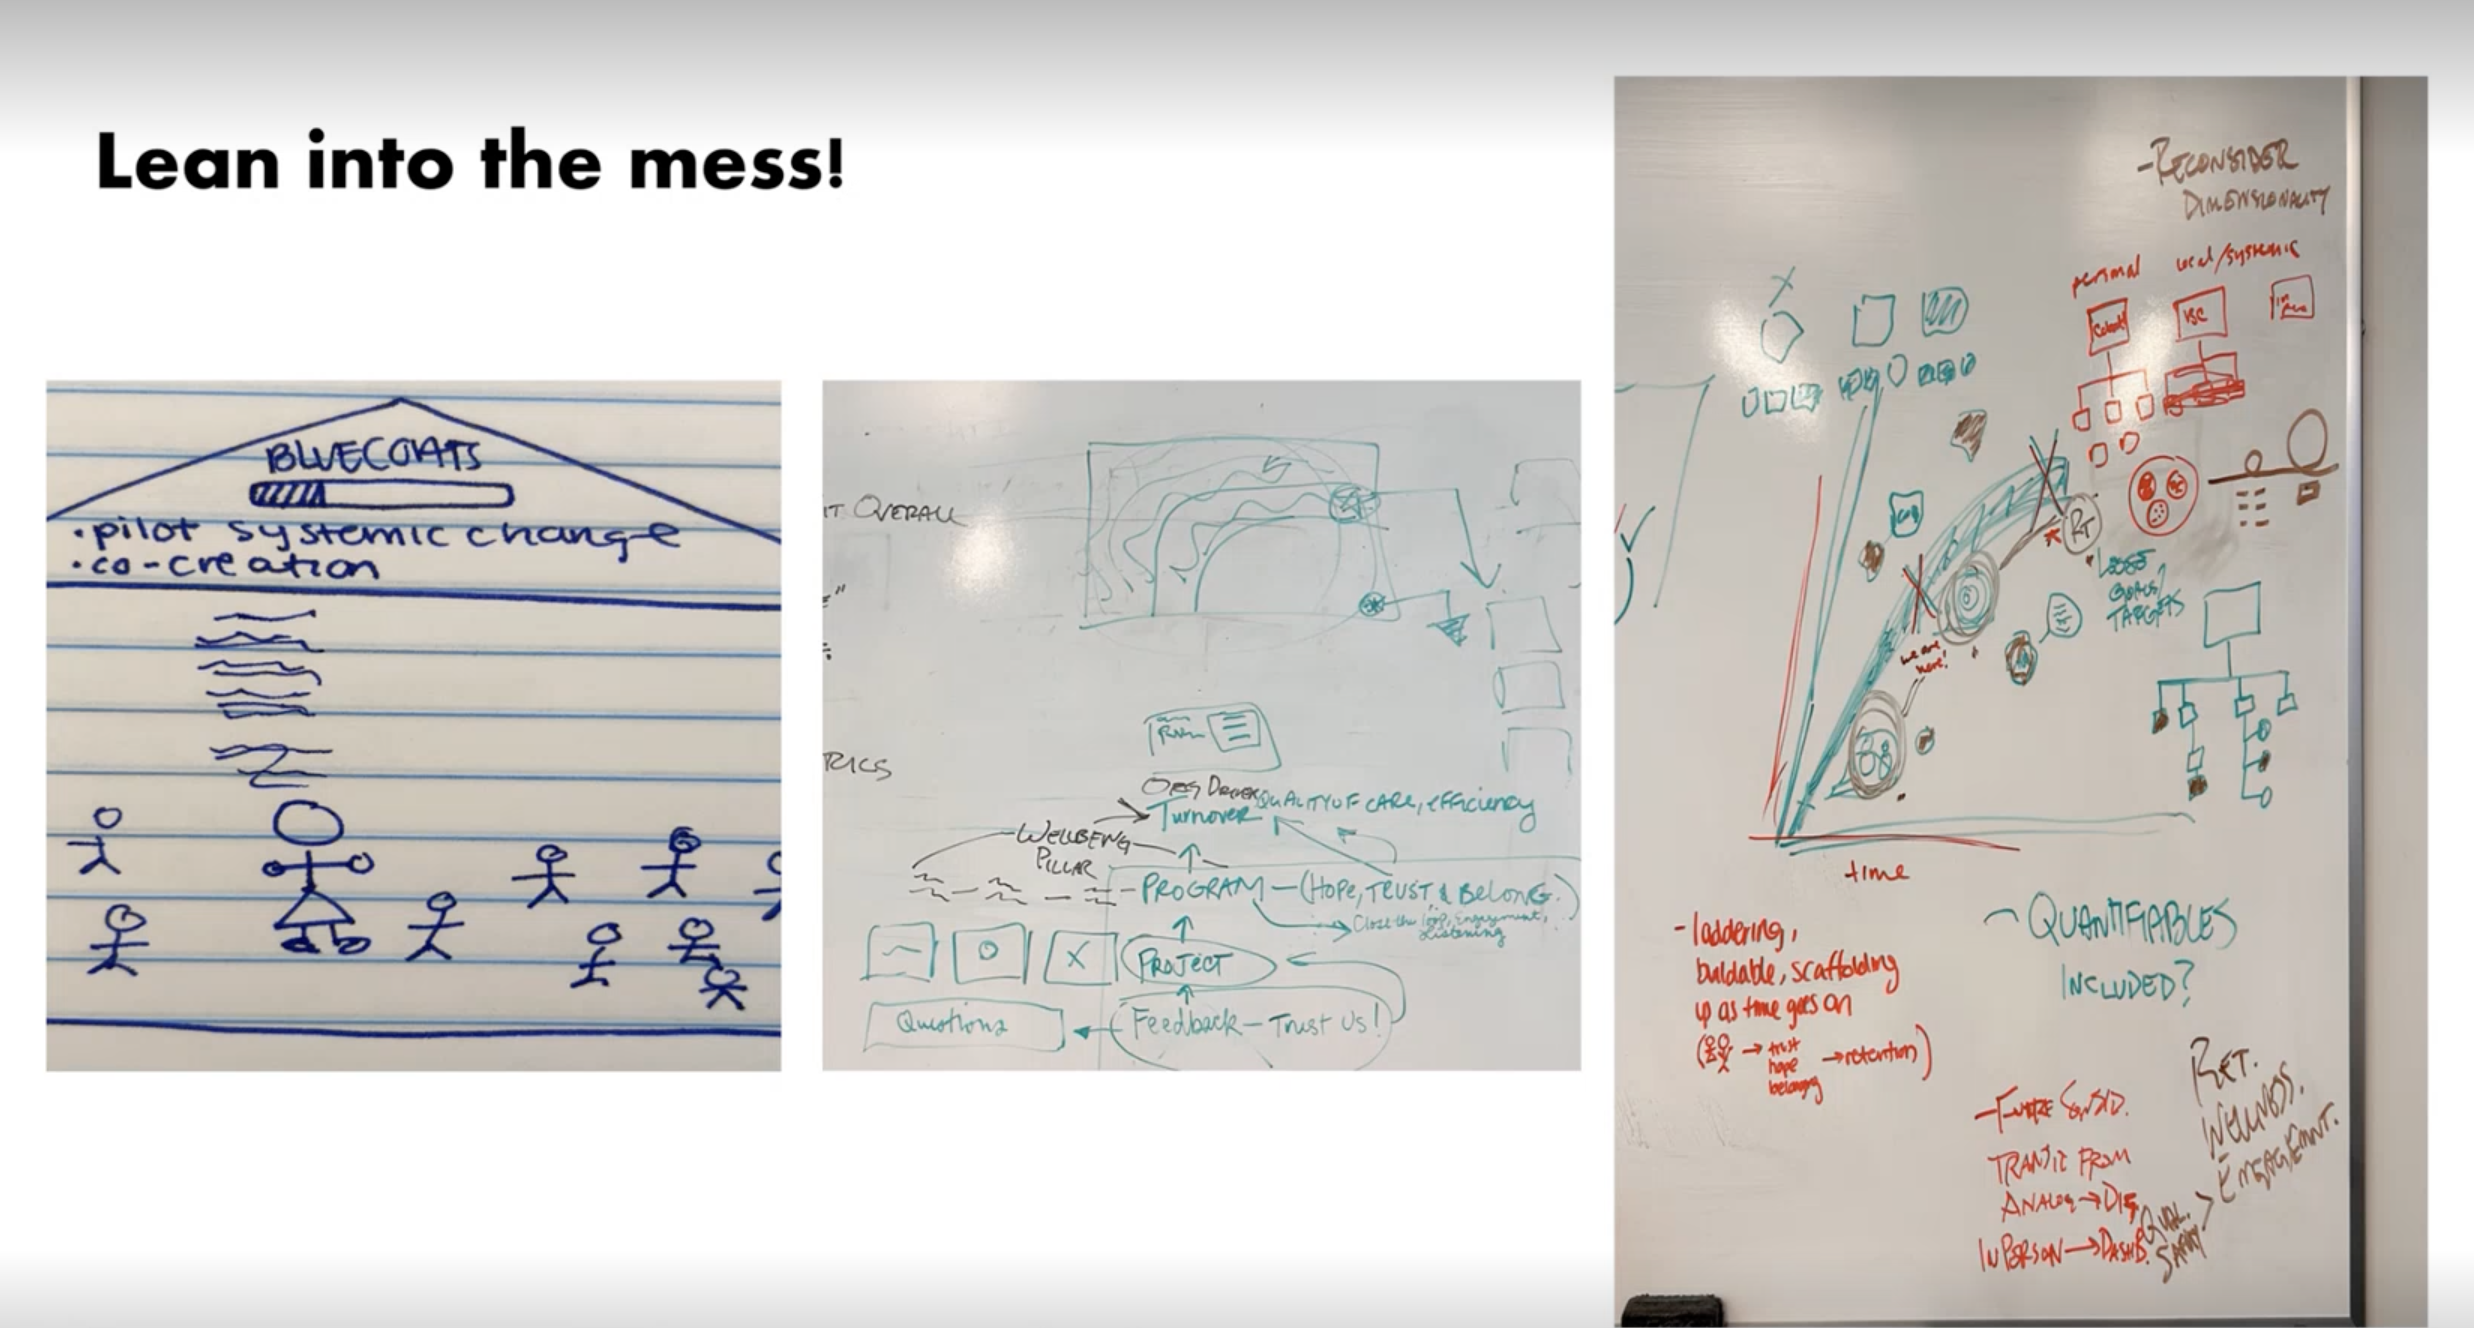 Lean into the mess!
BLUECOATS
• pilot systemic change
• co-creation
IT OVERALL
RICS
ORG DRIVEN
Turnover
QUALITY OF CARE, efficiency
WELLBEING
PILLAR
PROGRAM — (HOPE, TRUST, & BELONG.)
Close the loop, Engagement,
Listening
X
PROJECT
Questions
Feedback — Trust Us!
- RECONSIDER
DIMENSIONALITY
personal
local/systemic
RT
we are
here!
GOALS/
TARGETS
time
- laddering,
buildable, scaffolding
up as time goes on
( → trust
hope
belonging
→ retention)
- QUANTIFIABLES
INCLUDED?
- FUTURE CONSID.
FROM
ANALOG → DIG.
IN PERSON → DASHB.
QUAL.
SAFETY
>
RET.
WELLNESS.
ENGAGEMNT.